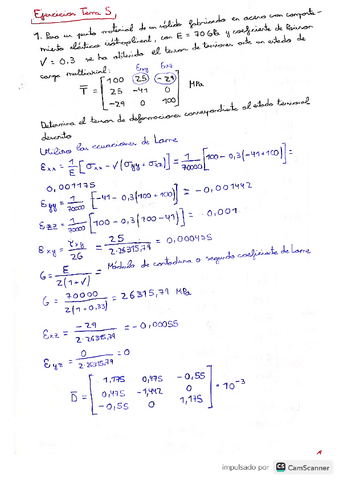 Ejercicios Tema 5
1. Para un punto material de un sólido fabricado en acero con comporta-
miento elástico isótropo lineal, con E = 70 GPa y coeficiente de Poisson
V = 0.3 se ha obtenido el tensor de tensiones ante un estado de
carga multiaxial:
Exy Exz
T = [100 25 -29
25 -41 0
-29 0 100] MPa
Determina el tensor de deformaciones correspondiente al estado tensional
descrito
Utilizo las ecuaciones de Lame
Exx = 1/E [σxx - V(σyy + σzz)] = 1/70000 [100 - 0,3(-41+100)] =
0,001175
Eyy = 1/70000 [-41 - 0,3(100+100)] = -0,001442
Ezz = 1/70000 [100 - 0,3(100-41)] = 0,001
Exy = τxy/2G = 25/2·26315,79 = 0,000475
G = E/2(1+V) = Módulo de cortadura o segundo coeficiente de Lame
G = 70000/2(1+0,33) = 26315,79 MPa
Exz = -29/2·26315,79 = -0,00055
Eyz = 0/2·26315,79 = 0
D = [1,175 0,475 -0,55
0,475 -1,442 0
-0,55 0 1,175] · 10⁻³
1
impulsado por CS CamScanner